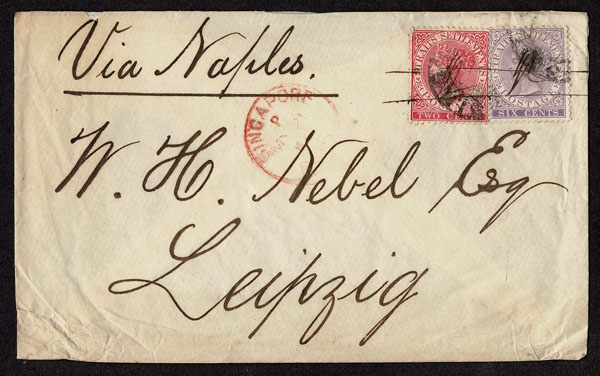 Via Naples.
STRAITS SETTLEMENTS
POSTAGE
TWO
STRAITS SETTLEMENTS
POSTAGE
SIX CENTS
SINGAPORE
P
W. H. Nebel Esq
Leipzig